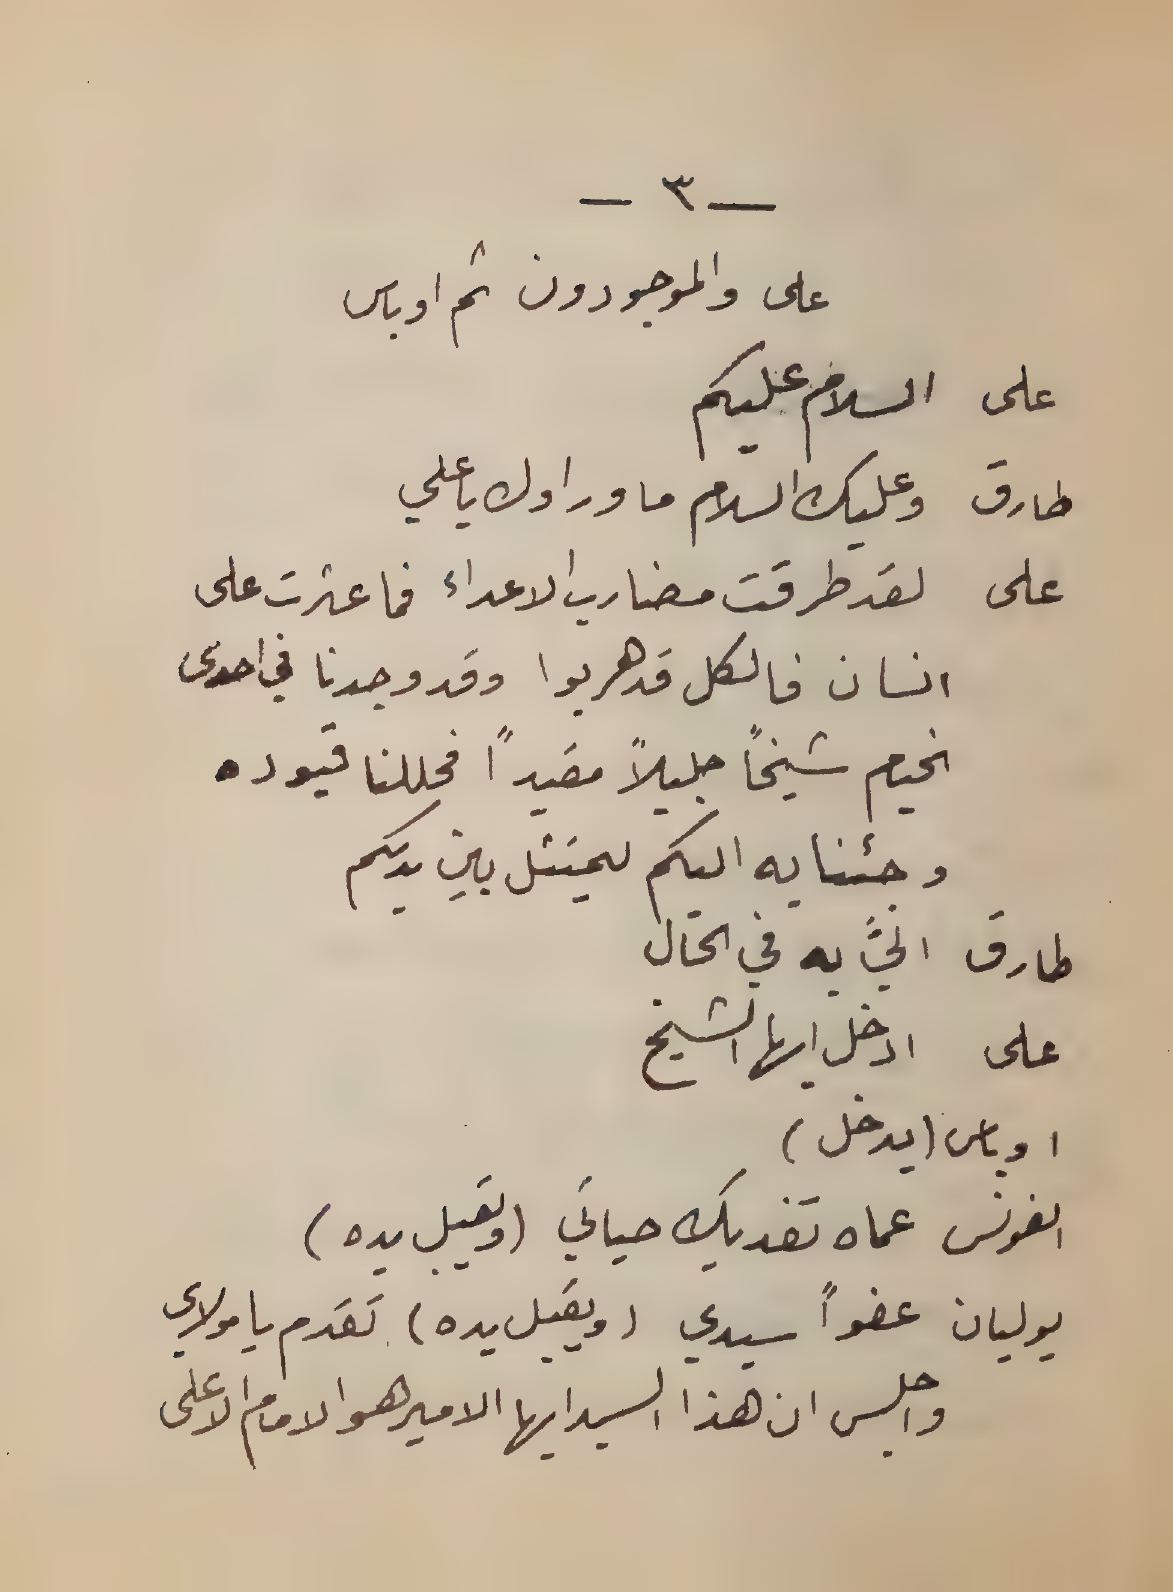 — ٣ —
على والموجودون ثم اوباس
على السلام عليكم
طارق وعليك السلام ما وراوك يا علي
على لقد طرقت مضارب الاعداء فما عثرت على
انسان فالكل قد هربوا وقد وجدنا في احدى
الخيم شيخاً جليلاً مقيداً فحللنا قيوده
وجئنا به اليكم ليمتثل بين يديكم
طارق اتيّ به في الحال
على ادخل ايها الشيخ
اوباس (يدخل)
الفونس عماه تفديك حياتي (ويقبل يده)
يوليان عفواً سيدي (ويقبل يده) تقدم يا مولاي
واجلس ان هذا السيد ايها الامير هو الامام الاعلى